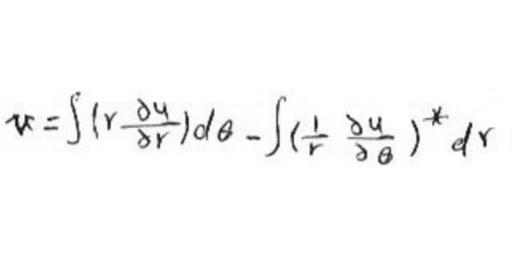 v = ∫(r ∂u/∂r)dθ - ∫(1/r ∂u/∂θ)* dr